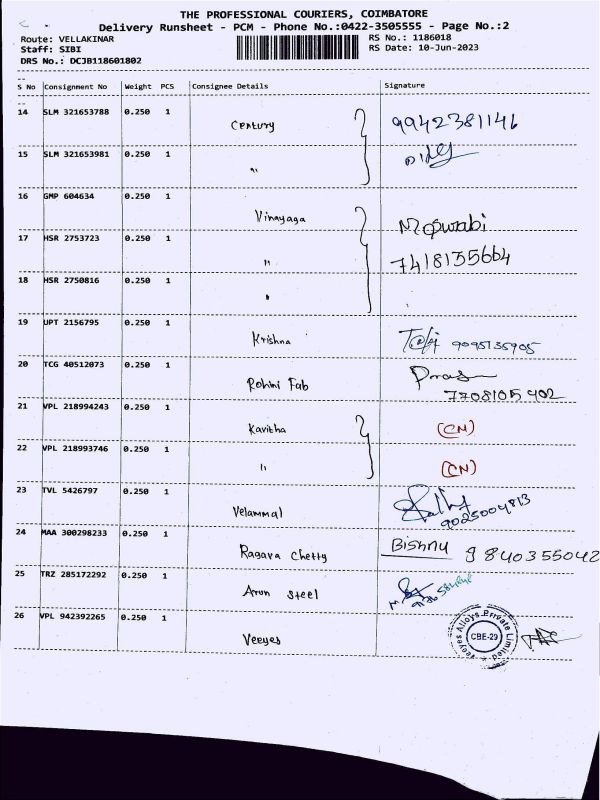 THE PROFESSIONAL COURIERS, COIMBATORE
Delivery Runsheet - PCM - Phone No.:0422-3505555 - Page No.:2
Route: VELLAKINAR RS No.: 1186018
Staff: SIBI RS Date: 10-Jun-2023
DRS No.: DCJB118601802
S No Consignment No Weight PCS Consignee Details Signature
14 SLM 321653788 0.250 1 Century 9942381146
15 SLM 321653981 0.250 1 "
16 GMP 604634 0.250 1 Vinayaga
17 HSR 2753723 0.250 1 " 7418135664
18 HSR 2750816 0.250 1 "
19 UPT 2156795 0.250 1 Krishna 9095135905
20 TCG 40512073 0.250 1 Rohini Fab 7708105402
21 VPL 218994243 0.250 1 Kavitha (CN)
22 VPL 218993746 0.250 1 " (CN)
23 TVL 5426797 0.250 1 Velammal 9025004813
24 MAA 300298233 0.250 1 Ragava Chetty Bishnu 9840355042
25 TRZ 285172292 0.250 1 Arun steel
26 VPL 942392265 0.250 1 Veeyes Veeyes Alloys Private Limited CBE-29